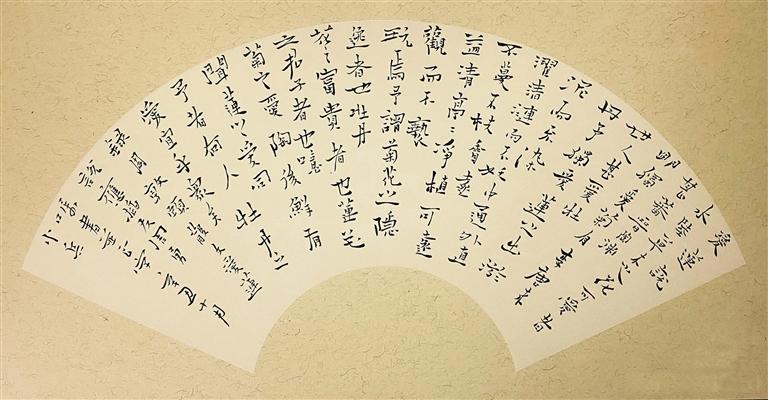 愛蓮說
水陸草木之花可愛者
甚蕃晋陶淵
明獨愛菊自李唐來
世人甚愛牡
丹予獨愛蓮之出淤
泥而不染
濯清漣而不妖中通外直
不蔓不枝香遠
益清亭亭淨植可遠
觀而不褻
玩焉予謂菊花之隱
逸者也牡丹
花之富貴者也蓮花
之君子者也噫
菊之愛陶後鮮有
聞蓮之愛同
予者何人牡丹之
愛宜乎眾矣
錄周敦頤文愛蓮
說應友周勇
書辛丑十月